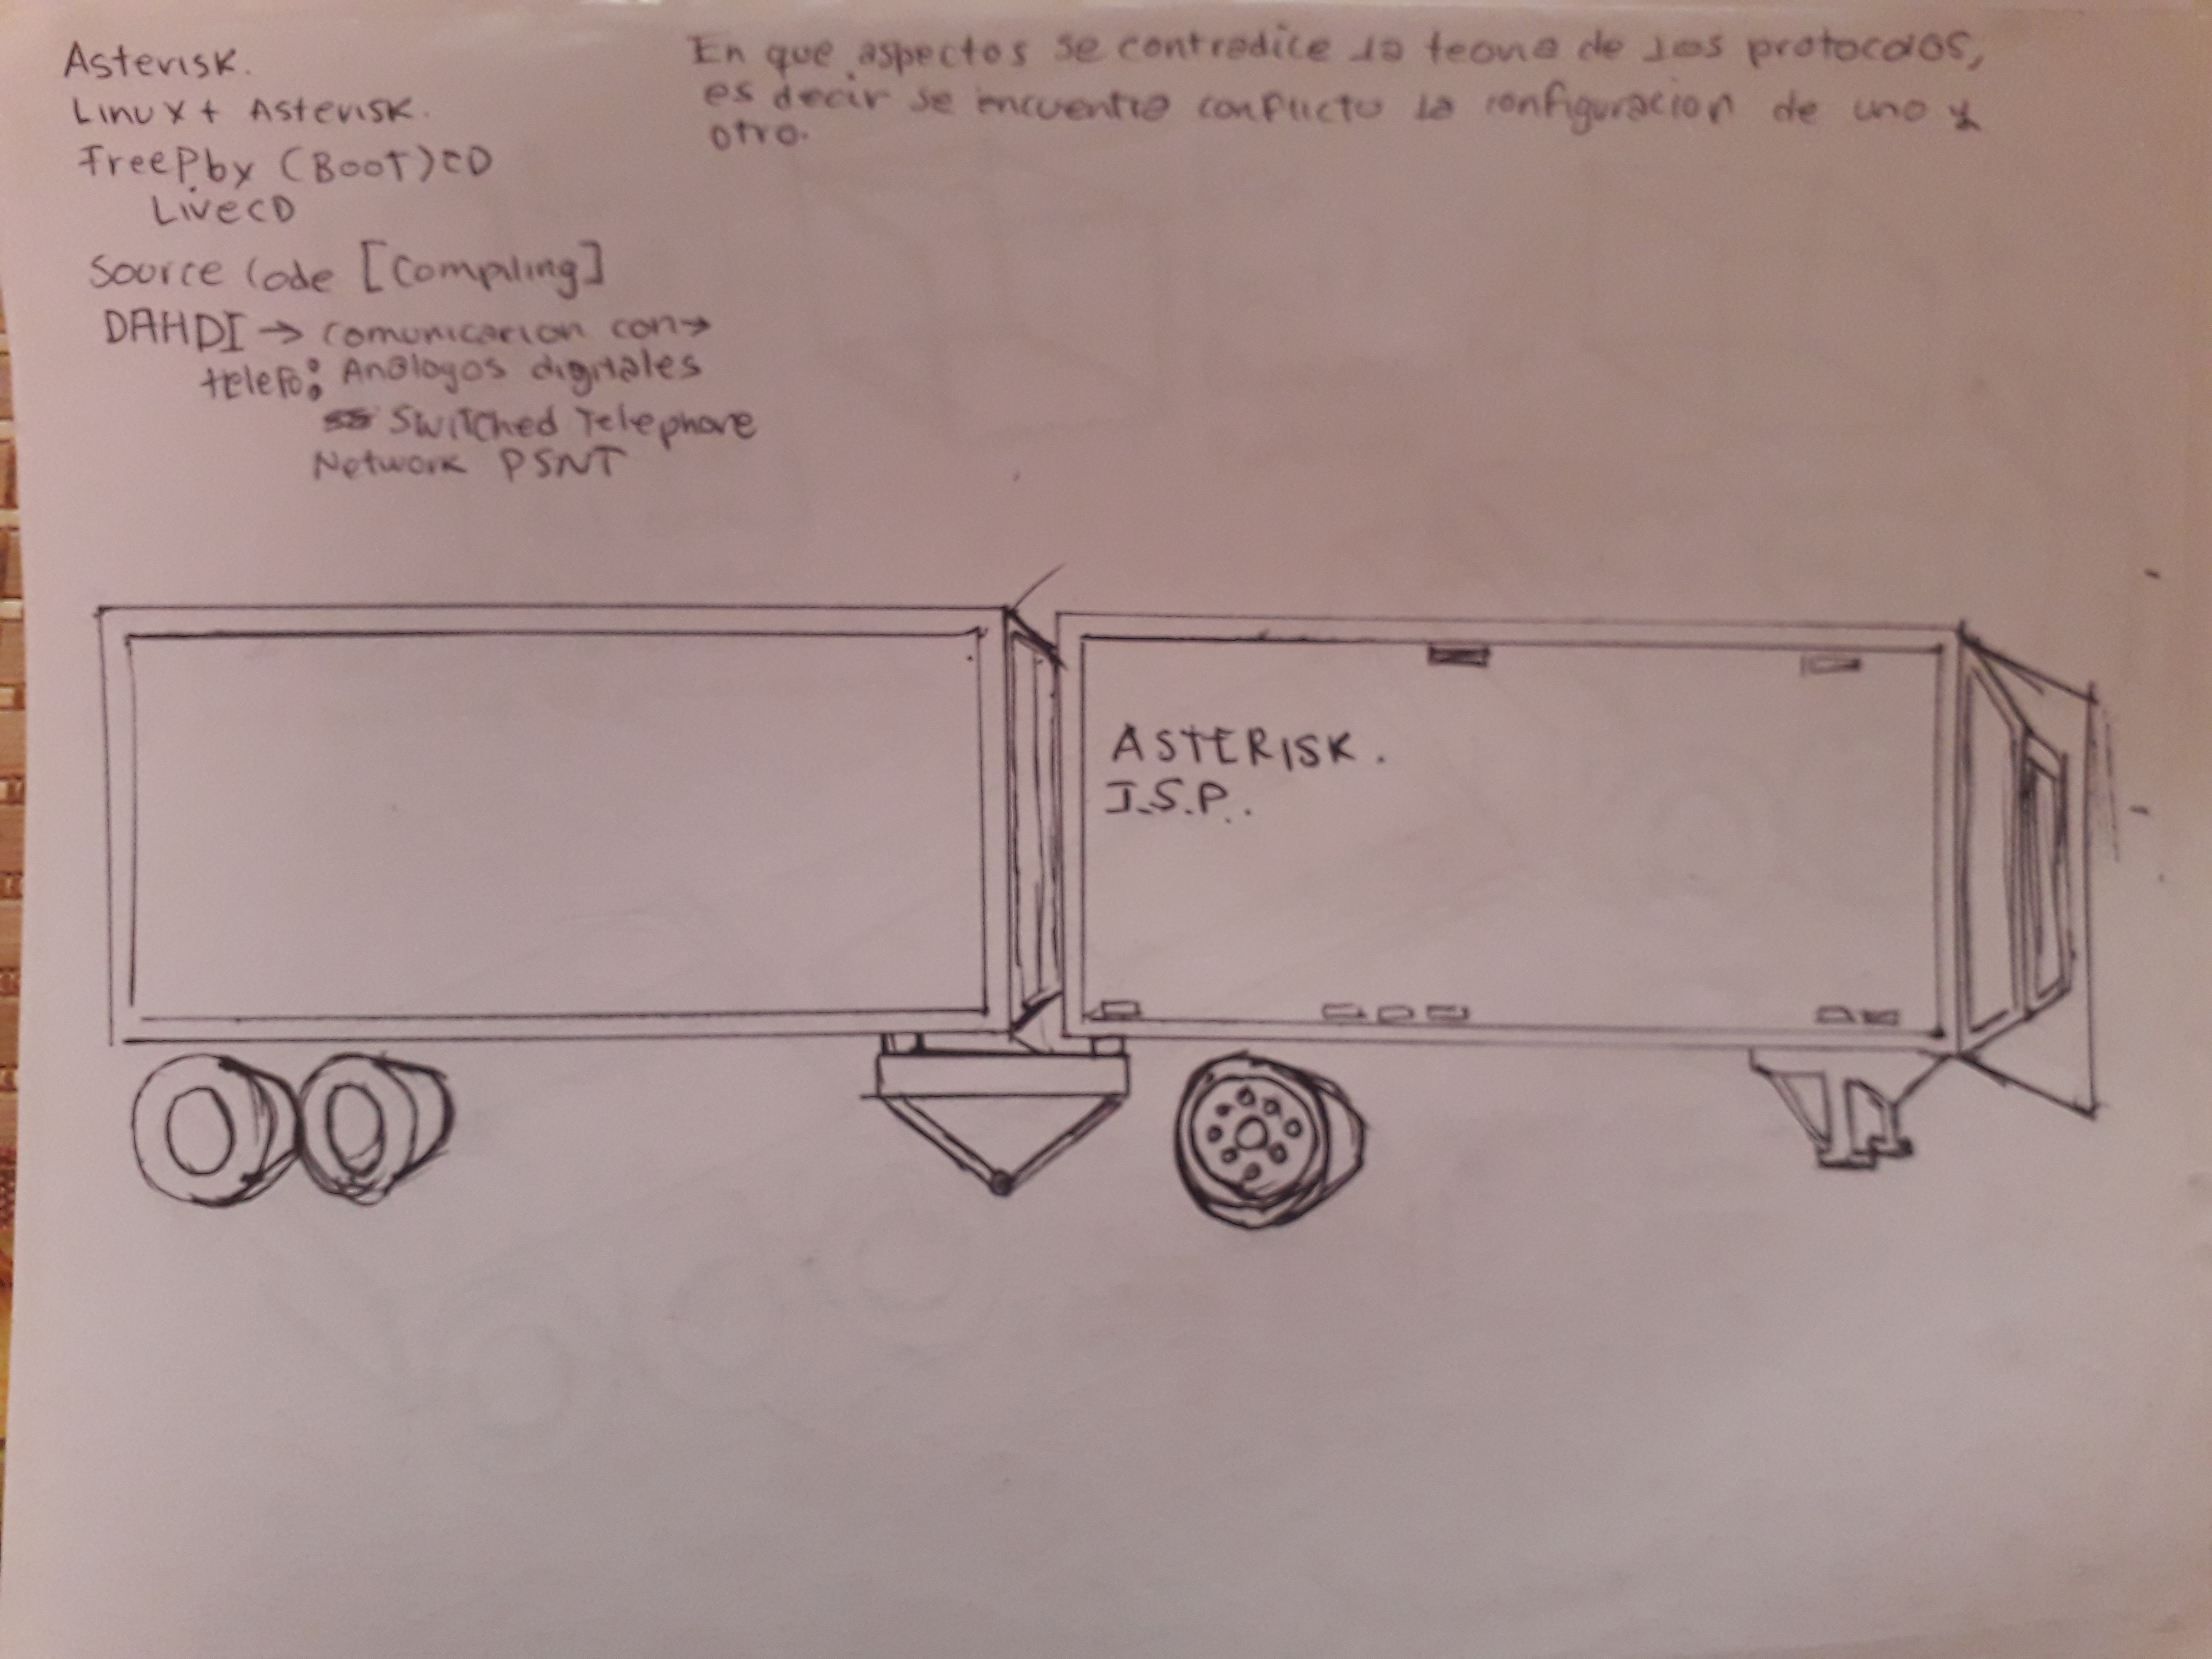 Asterisk.
Linux + Asterisk.
FreePbx (Boot) CD
LiveCD
Source Code [Compiling]
DAHDI → Comunicacion con →
telefo: Analogos digitales
Switched Telephone
Network PSNT
En que aspectos se contradice la teoria de los protocolos,
es decir se encuentra conflicto la configuracion de uno y
otro.
ASTERISK.
I.S.P.